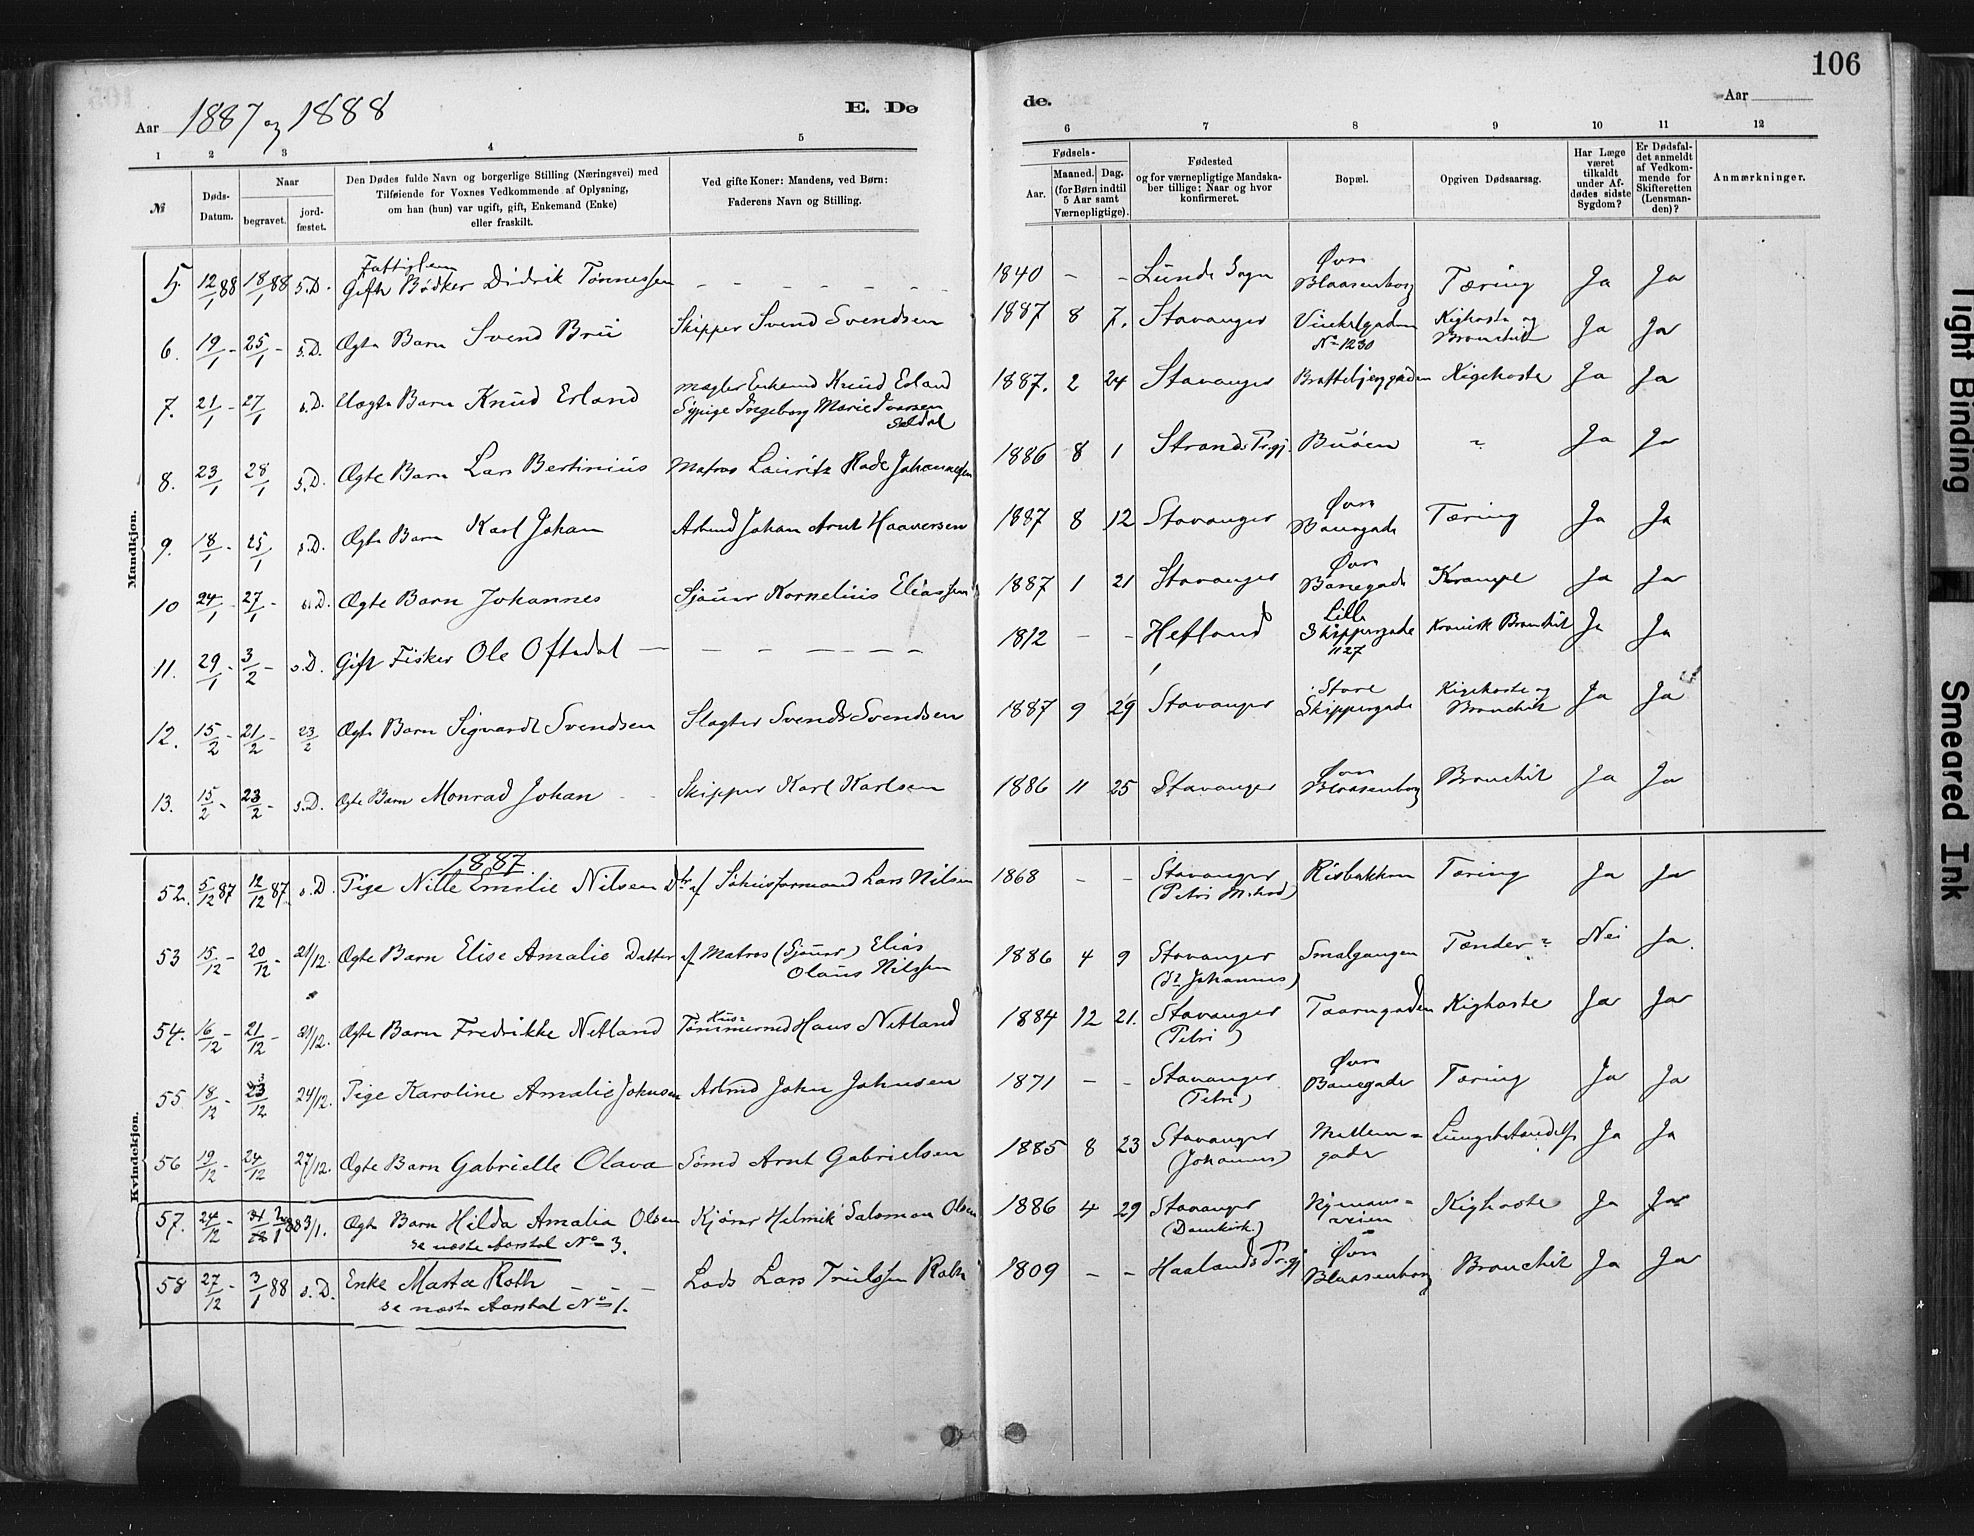 106
Aar 1887 og 1888
E. Dø
de.
Aar
1 2 3 4 5 6 7 8 9 10 11 12
№
Døds-Datum.
Naar
begravet.
jordfæstet.
Den Dødes fulde Navn og borgerlige Stilling (Næringsvei) med
Tilføiende for Voxnes Vedkommende af Oplysning,
om han (hun) var ugift, gift, Enkemand (Enke)
eller fraskilt.
Ved gifte Koner: Mandens, ved Børn:
Faderens Navn og Stilling.
Fødsels-
Aar. Maaned. Dag.
(for Børn indtil
5 Aar samt
Værnepligtige).
Fødested
og for værnepligtige Mandska-
ber tillige: Naar og hvor
konfirmeret.
Bopæl.
Opgiven Dødsaarsag.
Har Læge
været
tilkaldt
under Af-
dødes sidste
Sygdom?
Er Dødsfal-
det anmeldt
af Vedkom-
mende for
Skifteretten
(Lensman-
den)?
Anmærkninger.
Mandkjøn.
5. 12/1 88 18/1 88 s.D. Gift Bødker Didrik Tønnessen - - - - - - 1840 - - Lunde Sogn Øvre Blaasenborg Tæring Ja Ja
6. 19/1 - 25/1 - s.D. Ægte Barn Svend Brü Skipper Svend Svendsen 1887 8 7. Stavanger Vinkelgaden No 1230 Kighoste og Bronchit Ja Ja
7. 21/1 - 27/1 s.D. Uægte Barn Knud Erland Mægler Enkemd Knud Erland Sypige Ingeborg Marie Ivarsen 1887. 2 24 Stavanger Kigehoste Ja Ja
8. 23/1 28/1 s.D. Ægte Barn Lars Bertinius Matros Lauritz Rade Johannessen 1886 8 1 Strands Prgj. Buøen " Ja Ja
9. 18/1 - 25/1 s.D. Ægte Barn Karl Johan Arbmd Johan Arnt Haaversen 1887 8 12 Stavanger Øvre Banegade Tæring Ja Ja
10 24/1 - 27/1 - s.D. Ægte Barn Johannes Sjauer Kornelius Eliassen 1887 1 21 Stavanger Øvre Banegade Krampe Ja Ja
11. 29/1 - 3/2 - s.D. Gift Fisker Ole Oftedal - - - - - - 1812 - - Hetland Lille Skippergade 1127 Kronisk Bronchit Ja Ja
12. 15/2 - 21/2 - 23/2 Ægte Barn Sigvardt Svendsen Slagter Svend Svendsen 1887 9 29 Stavanger Store Skippergade Kigehoste og Bronchit Ja Ja
13. 15/2 - 23/2 - s.D. Ægte Barn Monrad Johan Skipper Karl Karlsen 1886 11 25 Stavanger Øvre Blaasenborg Bronchit Ja Ja
1887
Kvindekjøn.
52. 5/12 87 12/12 87. s.D. Pige Nille Emilie Nilsen Dtr af Lars Nilsen 1868 - - Stavanger (Petri Menhed) Risbakken Tæring Ja Ja
53 15/12 - 20/12 - 21/12. Ægte Barn Elise Amalie Datter af Matros (Sjauer) Elias Olaus Nilssen 1886 4 9 Stavanger (St Johannes) Smalgangen Tænder Nei Ja.
54. 16/12 - 21/12 - 21/12. Ægte Barn Fredrikke Netland Hus=Tømmermd Hans Netland 1884 12 21. Stavanger (Petri) Taarngaden Kighoste Ja Ja
55 18/12 - 23/12 24/12. Pige Karoline Amalie Johnsen Arbmd John Johnsen 1871 - - Stavanger (Petri) Øvre Banegade Tæring Ja Ja
56 19/12 - 24/12 27/12. Ægte Barn Gabrielle Olava Sømd Arnt Gabrielsen 1885 8 23 Stavanger (Johannes) Mellem=gade Lungebetændelse Ja Ja
57. 24/12 - 2/1 88 3/1. Ægte Barn Hilda Amalia Olsen Kjører Helmik Salomon Olsen 1886 4 29 Stavanger (Domkirk.) Kighoste Ja Ja
se næste Aarstal No 3.
58 27/12 - 3/1 88 s.D. Enke Marta Roth - - - Lods Lars Trulssen Roth 1809 - - Haalands Prgj Øvre Blaasenborg Bronchit Ja Ja
se næste Aarstal No 1.
Tight Binding
Smeared Ink